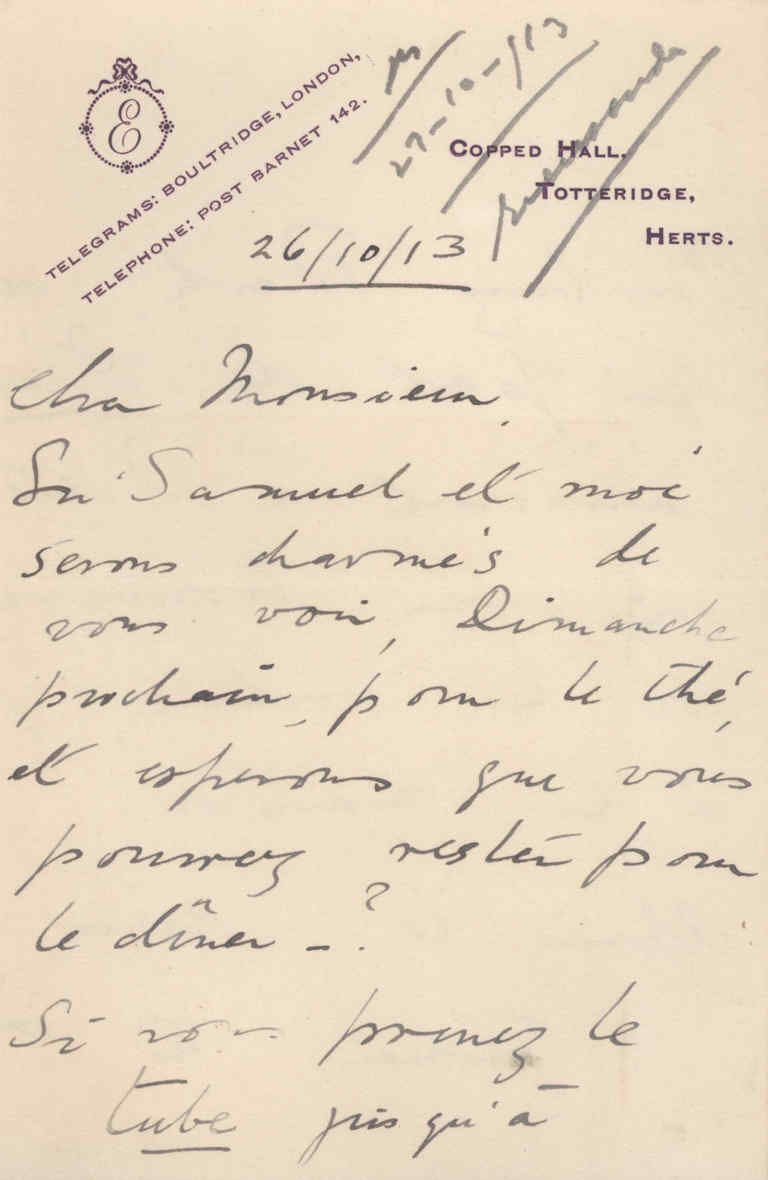 E
TELEGRAMS: BOULTRIDGE, LONDON,
TELEPHONE: POST BARNET 142.
27-10-/13
COPPED HALL,
TOTTERIDGE,
HERTS.
26/10/13
Cher Monsieur,
Sir Samuel et moi
serons charmés de
vous voir, Dimanche
prochain, pour le thé,
et esperons que vous
pourrez rester pour
le dîner - ?
Si vous prenez le
tube jusqu'à